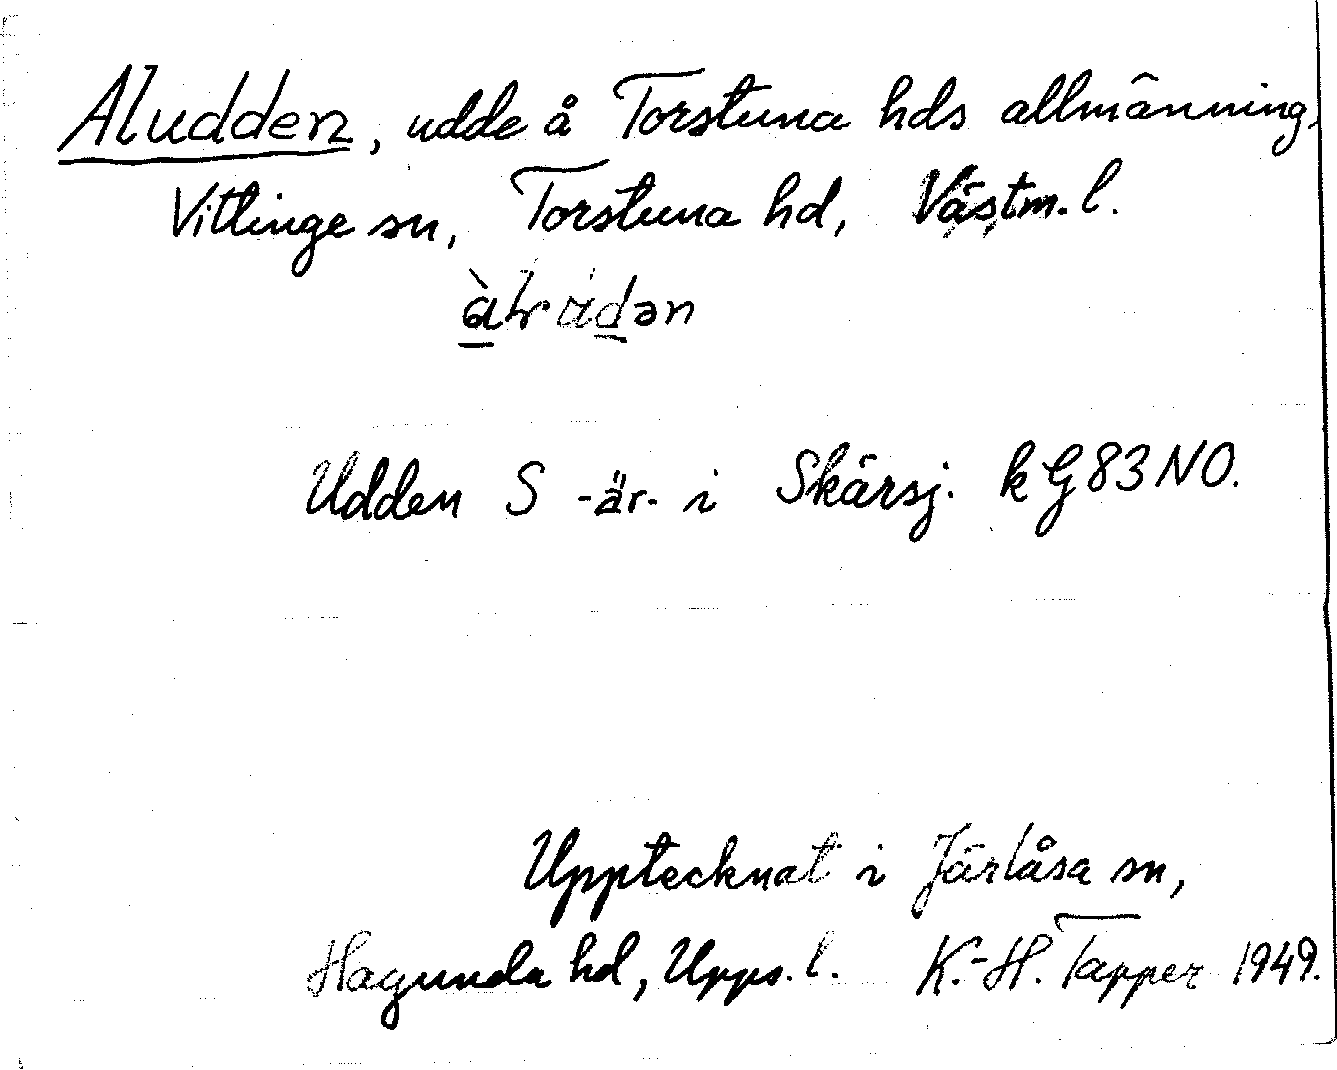 Aludden, udde å Torstuna hds allmänning,
Vittinge sn, Torstuna hd, Västm. l.
Udden S -är- i Skärsj. k G83NO.
Upptecknat i Järlåsa sn,
Hagunda hd, Upps. l. K.-H. Tapper 1949.